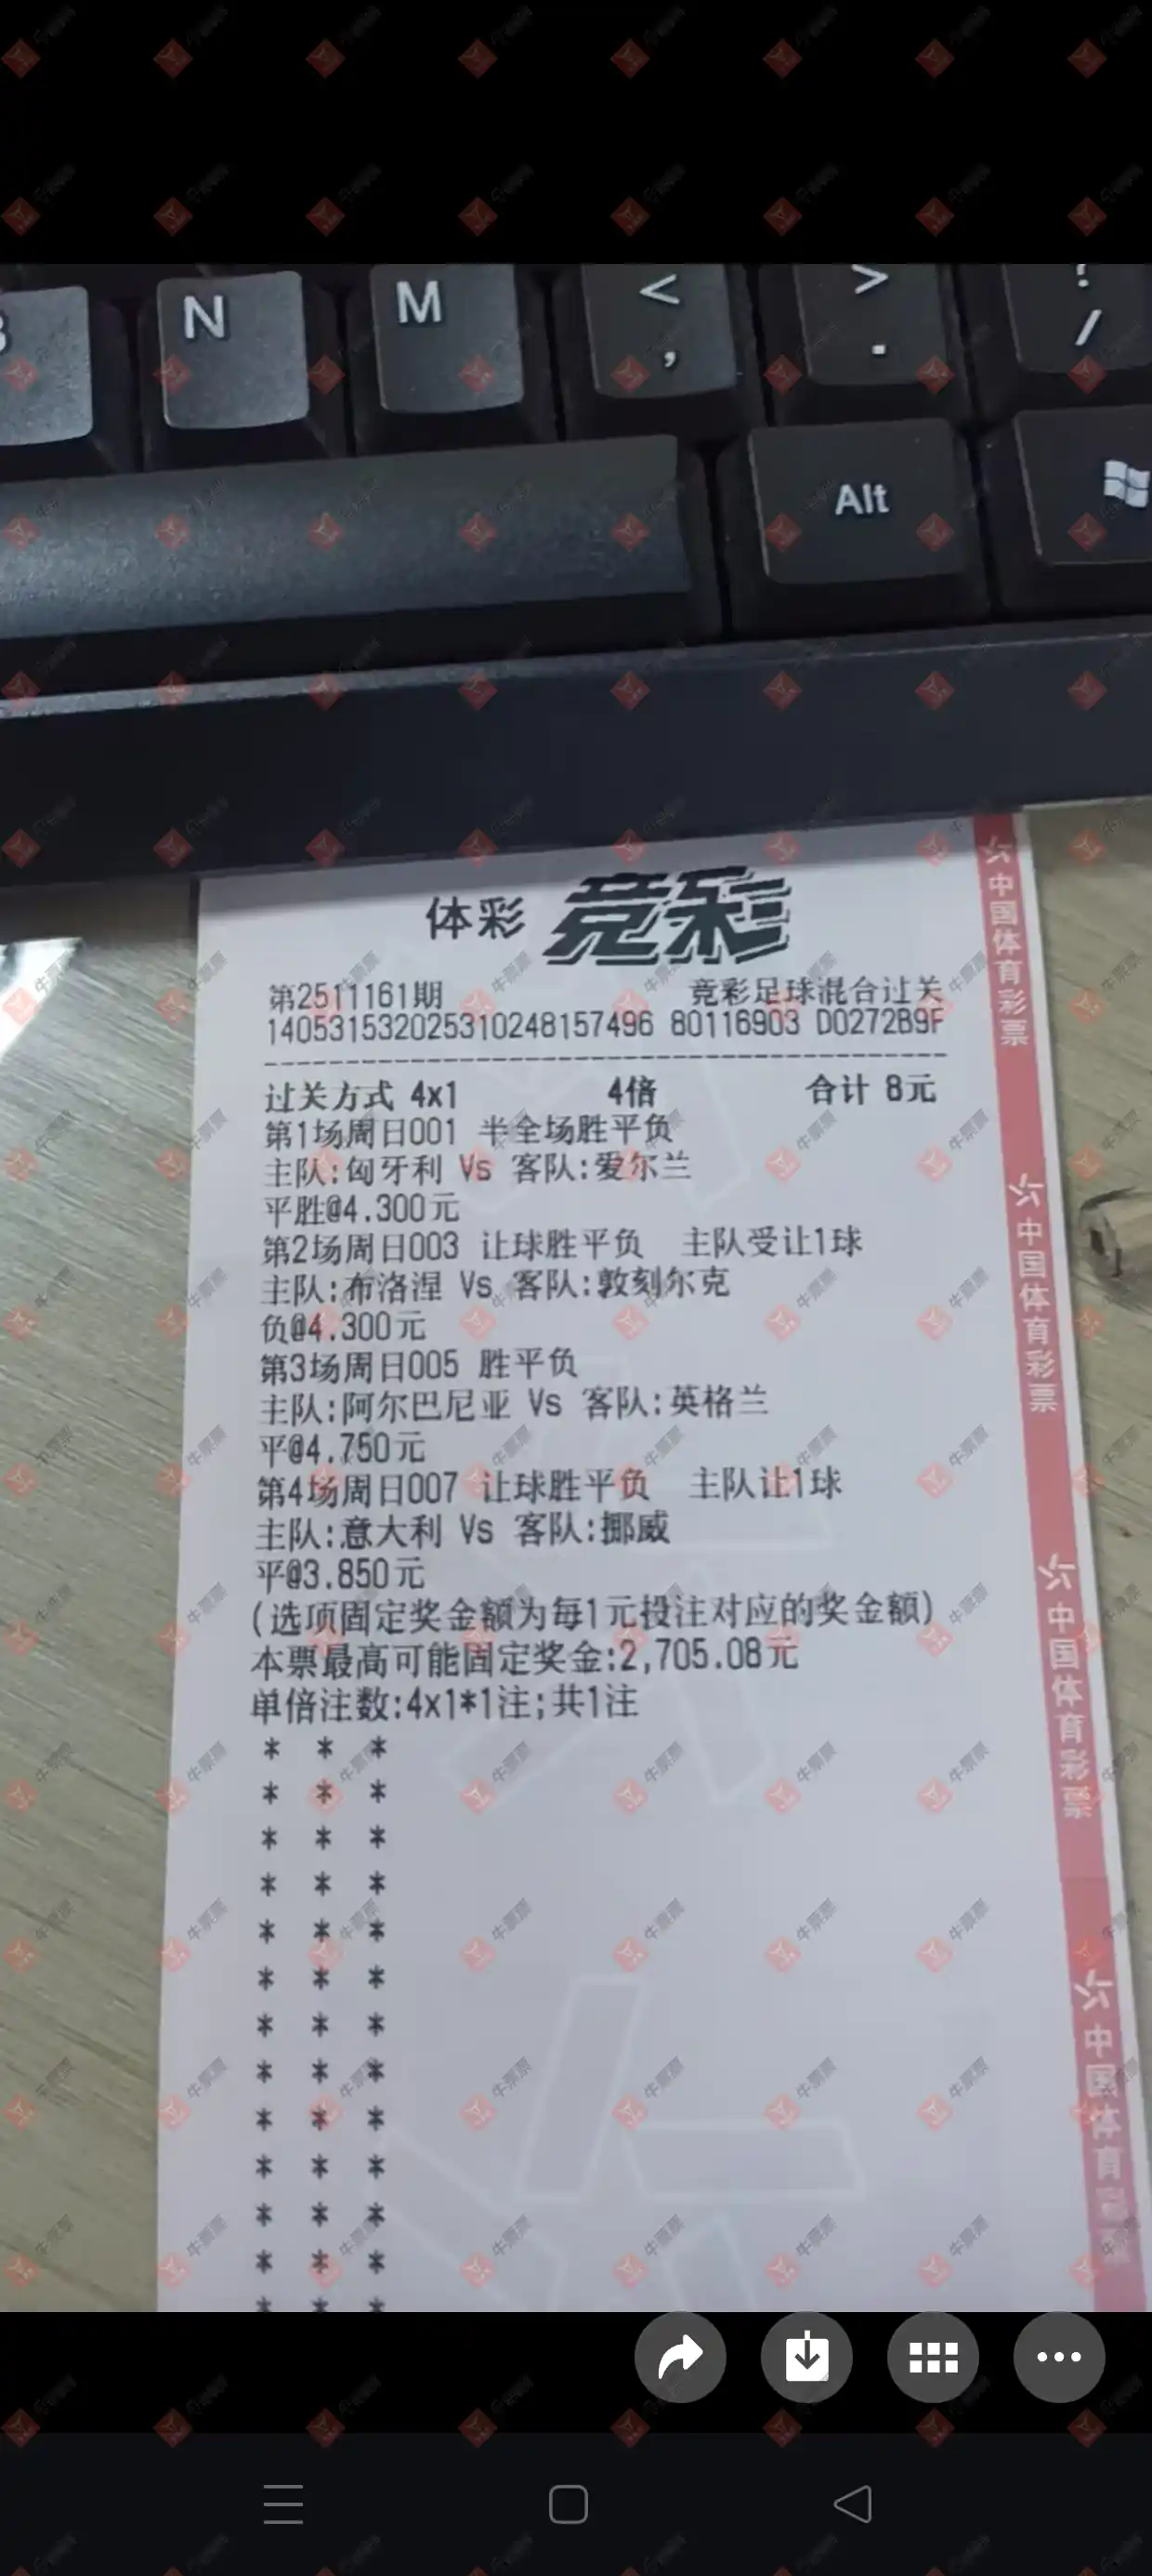 B N M < , > . ! /
Alt
体彩 竞彩
第2511161期 竞彩足球混合过关
140531532025310248157496 80116903 D0272B9F
过关方式 4x1 4倍 合计 8元
第1场周日001 半全场胜平负
主队:匈牙利 Vs 客队:爱尔兰
平胜@4.300元
第2场周日003 让球胜平负 主队受让1球
主队:布洛涅 Vs 客队:敦刻尔克
负@4.300元
第3场周日005 胜平负
主队:阿尔巴尼亚 Vs 客队:英格兰
平@4.750元
第4场周日007 让球胜平负 主队让1球
主队:意大利 Vs 客队:挪威
平@3.850元
(选项固定奖金额为每1元投注对应的奖金额)
本票最高可能固定奖金:2,705.08元
单倍注数:4x1*1注;共1注
* * *
* * *
* * *
* * *
* * *
* * *
* * *
* * *
* * *
* * *
* * *
* * *
* * *
中国体育彩票
中国体育彩票
中国体育彩票
中国体育彩票
牛票票